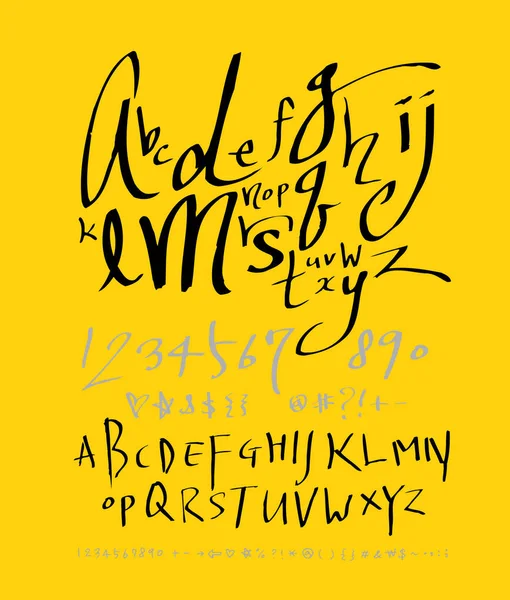 Abcdefghij
klmnopqrstuvwxyz
1234567890
♡☆&${} @#?!+-
ABCDEFGHIJKLMN
OPQRSTUVWXYZ
1234567890